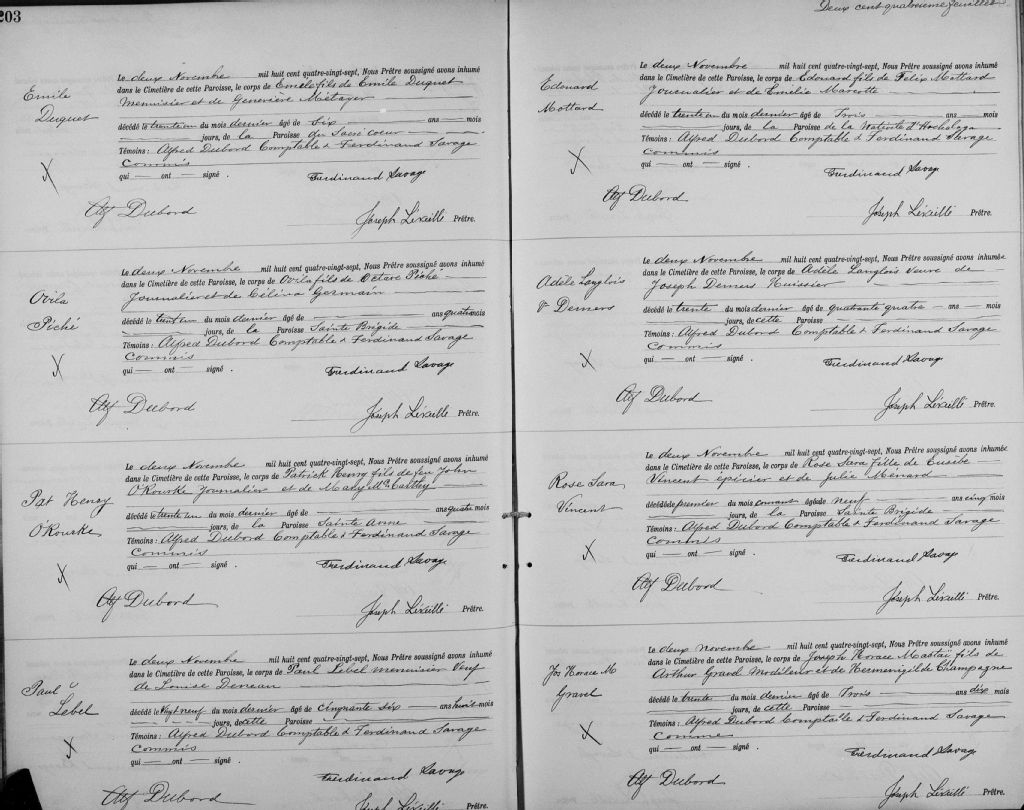 203
Emile
Duquet
Le deux Novembre mil huit cent quatre-vingt-sept, Nous Prêtre soussigné avons inhumé
dans le Cimetière de cette Paroisse, le corps de Emile fils de Emile Duquet
Menuisier et de Geneviève Métayer
décédé le trente un du mois dernier âgé de Six ans mois
jours, de la Paroisse du Sacré coeur
Témoins : Alfred Dubord Comptable & Ferdinand Savage
Commis
qui — ont — signé .
Ferdinand Savage
Alf Dubord
Joseph Léveillé Prêtre.
Ovila
Piché
Le deux Novembre mil huit cent quatre-vingt-sept, Nous Prêtre soussigné avons inhumé
dans le Cimetière de cette Paroisse, le corps de Ovila fils de Octave Piché
Journalier et de Célina Germain
décédé le trent un du mois dernier âgé de ans quatre mois
jours, de la Paroisse Sainte Brigide
Témoins : Alfred Dubord Comptable & Ferdinand Savage
Commis
qui — ont — signé .
Ferdinand Savage
Alf Dubord
Joseph Léveillé Prêtre.
Pat Henry
O'Rourke
Le deux Novembre mil huit cent quatre-vingt-sept, Nous Prêtre soussigné avons inhumé
dans le Cimetière de cette Paroisse, le corps de Patrick Henry fils de feu John
O'Rourke Journalier et de Mary McCarthy
décédé le trente un du mois dernier âgé de ans quatre mois
jours, de la Paroisse Sainte Anne
Témoins : Alfred Dubord Comptable & Ferdinand Savage
Commis
qui — ont — signé .
Ferdinand Savage
Alf Dubord
Joseph Léveillé Prêtre.
Paul
Lebel
Le deux Novembre mil huit cent quatre-vingt-sept, Nous Prêtre soussigné avons inhumé
dans le Cimetière de cette Paroisse, le corps de Paul Lebel Menuisier Veuf
de Louise Deneau
décédé le Vingt neuf du mois dernier âgé de Cinquante six ans huit mois
jours, de cette Paroisse
Témoins : Alfred Dubord Comptable & Ferdinand Savage
Commis
qui — ont — signé .
Ferdinand Savage
Alf Dubord
Joseph Léveillé Prêtre.
Deux cent quatrieme feuillet
Edouard
Mottard
Le deux Novembre mil huit cent quatre-vingt-sept, Nous Prêtre soussigné avons inhumé
dans le Cimetière de cette Paroisse, le corps de Edouard fils de Felix Mottard
Journalier et de Emélie Marcotte
décédé le trente un du mois dernier âgé de Trois ans mois
jours, de la Paroisse de la Nativité d'Hochelaga
Témoins : Alfred Dubord Comptable & Ferdinand Savage
Commis
qui — ont — signé .
Ferdinand Savage
Alf Dubord
Joseph Léveillé Prêtre.
Adèle Langlois
V Demers
Le deux Novembre mil huit cent quatre-vingt-sept, Nous Prêtre soussigné avons inhumé
dans le Cimetière de cette Paroisse, le corps de Adèle Langlois Veuve de
Joseph Demers Huissier
décédé le trente du mois dernier âgé de quarante quatre ans mois
jours, de cette Paroisse
Témoins : Alfred Dubord Comptable & Ferdinand Savage
Commis
qui — ont — signé .
Ferdinand Savage
Alf Dubord
Joseph Léveillé Prêtre.
Rose Sara
Vincent
Le deux Novembre mil huit cent quatre-vingt-sept, Nous Prêtre soussigné avons inhumé
dans le Cimetière de cette Paroisse, le corps de Rose Sara fille de Eusèbe
Vincent épicier et de Julie Ménard
décédée le premier du mois courant âgée de neuf ans cinq mois
jours, de la Paroisse Sainte Brigide
Témoins : Alfred Dubord Comptable & Ferdinand Savage
Commis
qui — ont — signé .
Ferdinand Savage
Alf Dubord
Joseph Léveillé Prêtre.
Jos Horace M
Gravel
Le deux novembre mil huit cent quatre-vingt-sept, Nous Prêtre soussigné avons inhumé
dans le Cimetière de cette Paroisse, le corps de Joseph Horace Mastaï fils de
Arthur Gravel Modeleur et de Hermenégilde Champagne
décédé le trente du mois dernier âgé de Trois ans dix mois
jours, de cette Paroisse
Témoins : Alfred Dubord Comptable & Ferdinand Savage
Comme
qui — ont — signé .
Ferdinand Savage
Alf Dubord
Joseph Léveillé Prêtre.